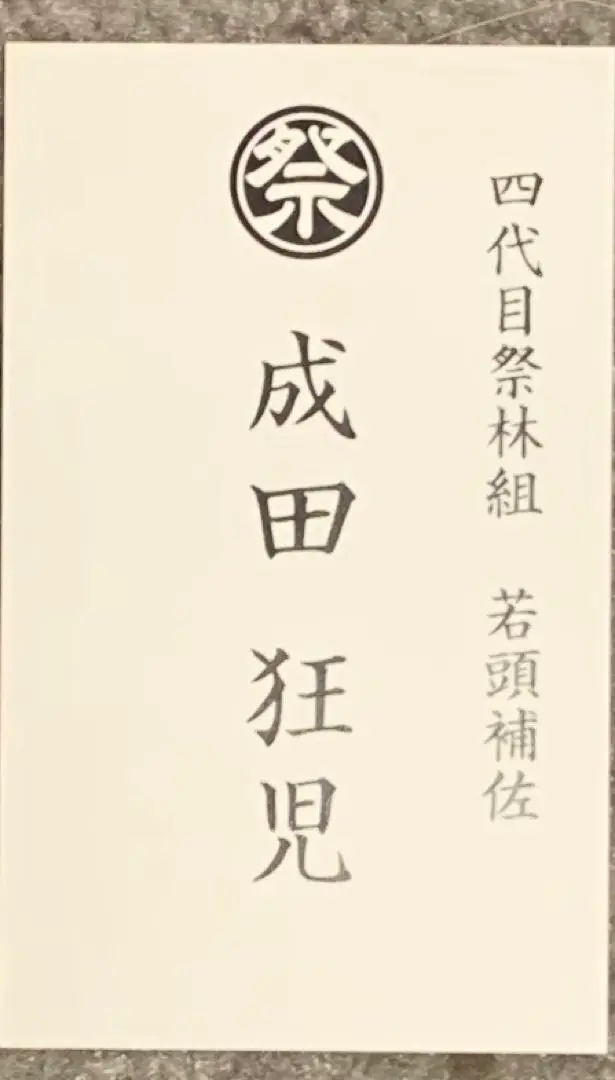 四代目祭林組 若頭補佐
祭
成田 狂児